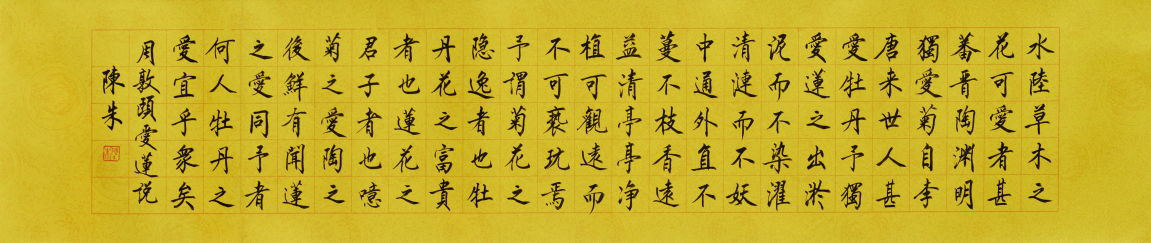 水陸草木之
花可愛者甚
蕃晋陶渊明
獨愛菊自李
唐来世人甚
愛牡丹予獨
愛蓮之出淤
泥而不染濯
清漣而不妖
中通外直不
蔓不枝香遠
益清亭亭净
植可觀遠而
不可褻玩焉
予謂菊花之
隐逸者也牡
丹花之富貴
者也蓮花之
君子者也噫
菊之愛陶之
後鮮有聞蓮
之愛同予者
何人牡丹之
愛宜乎衆矣
周敦頤愛蓮説
陳朱